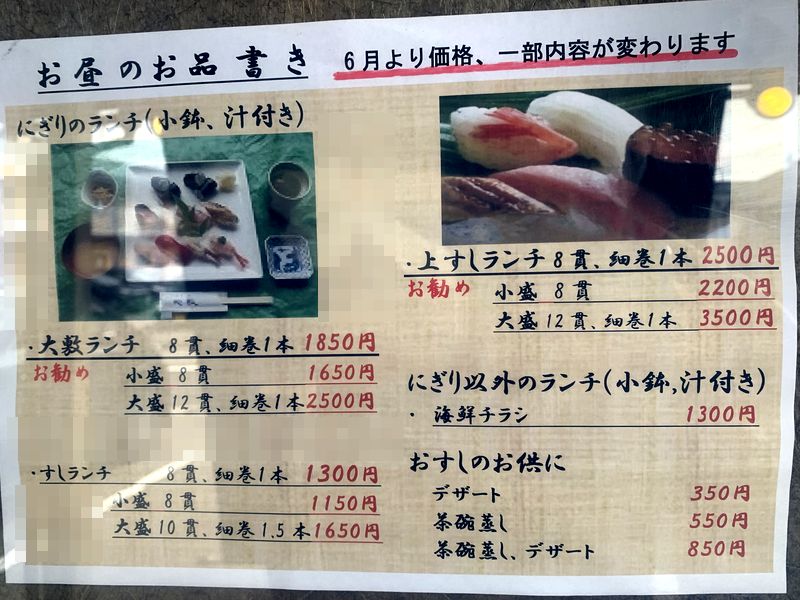 お昼のお品書き
6月より価格、一部内容が変わります
にぎりのランチ(小鉢、汁付き)
・大敷ランチ 8貫、細巻1本 1850円
お勧め 小盛 8貫 1650円
大盛12貫、細巻1本 2500円
・すしランチ 8貫、細巻1本 1300円
小盛 8貫 1150円
大盛10貫、細巻1.5本 1650円
・上すしランチ 8貫、細巻1本 2500円
お勧め 小盛 8貫 2200円
大盛12貫、細巻1本 3500円
にぎり以外のランチ(小鉢,汁付き)
・海鮮チラシ 1300円
おすしのお供に
デザート 350円
茶碗蒸し 550円
茶碗蒸し、デザート 850円